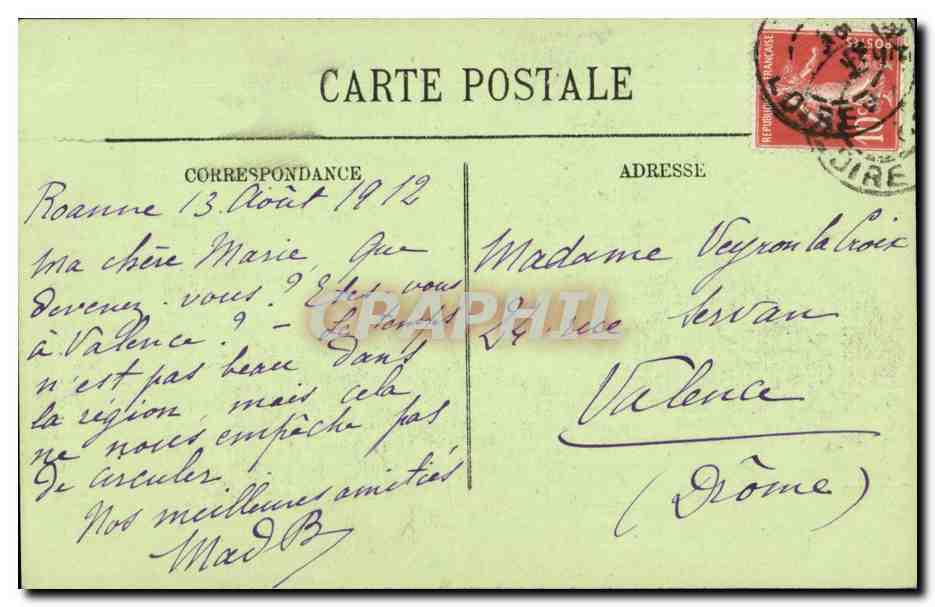 CARTE POSTALE
CORRESPONDANCE
Roanne 13 Août 1912
Ma chère Marie, que
devenez-vous? Etes vous
à Valence? – Le temps
n'est pas beau dans
la région, mais cela
ne nous empêche pas
de circuler.
Nos meilleures amitiés
Mad B
ADRESSE
Madame Veyron la Croix
rue Servan
Valence
(Drôme)
REPUBLIQUE FRANÇAISE
POSTES
10c
LOIRE
LOIRE
CPAPHIL